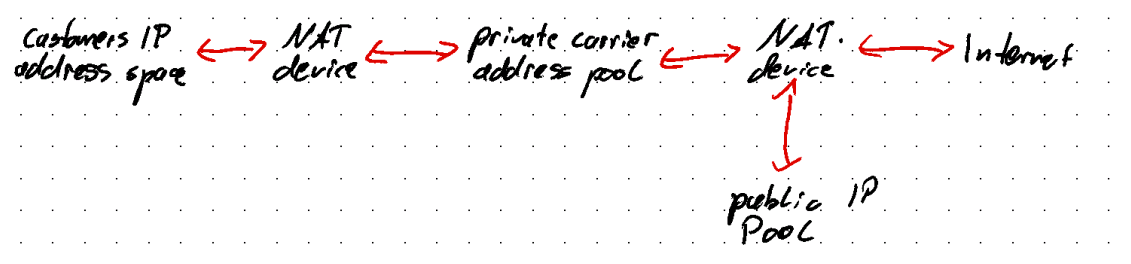 customers IP
address space
NAT
device
private carrier
address pool
NAT.
device
Internet
public IP
Pool